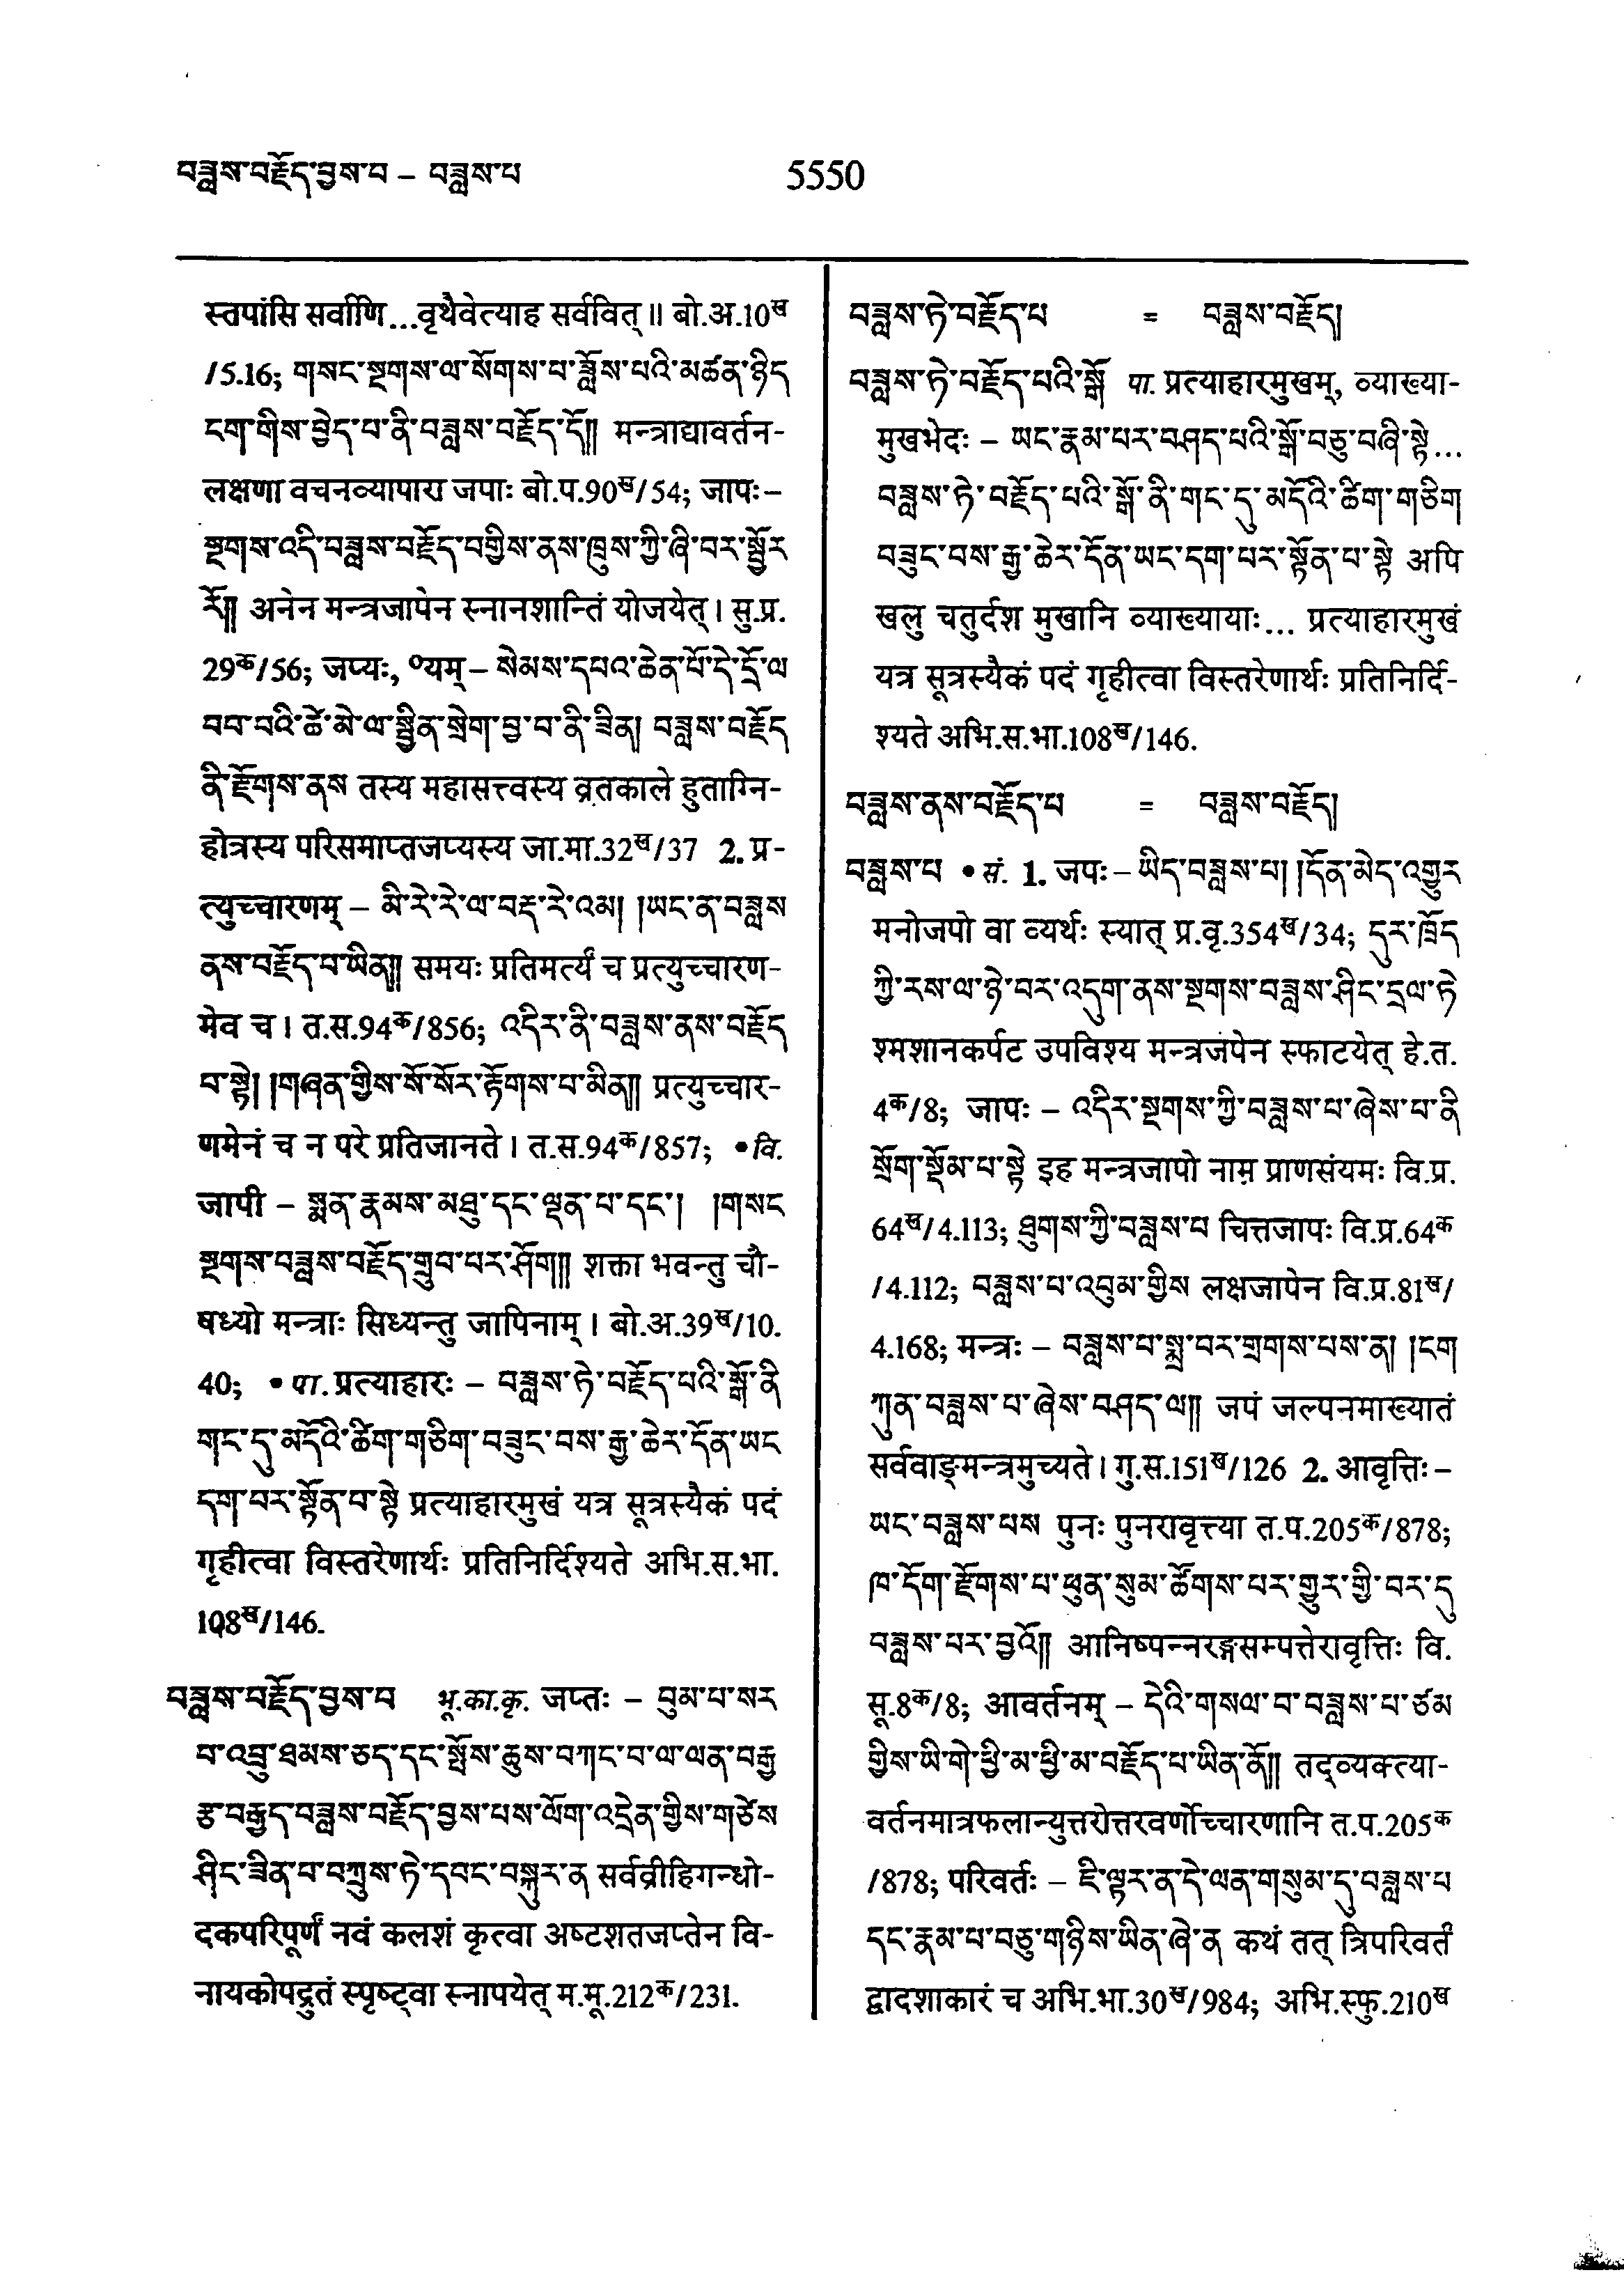 བཟླས་བརྗོད་བྱས་པ – བཟླས་པ
5550
स्तपांसि सर्वाणि...वृथैवेत्याह सर्ववित्॥ बो.अ.10ख
/5.16; གསང་སྔགས་ལ་སོགས་པ་ཟློས་པའི་མཚན་ཉིད
ངག་གིས་བྱེད་པ་ནི་བཟླས་བརྗོད་དོ།། मन्त्राद्यावर्तन-
लक्षणा वचनव्यापारा जपाः बो.प.90ख/54; जापः–
སྔགས་འདི་བཟླས་བརྗོད་བགྱིས་ནས་ཁྲུས་ཀྱི་ཞི་བར་སྦྱོར
རོ།། अनेन मन्त्रजापेन स्नानशान्तिं योजयेत्। सु.प्र.
29क/56; जप्यः, ०यम् – སེམས་དཔའ་ཆེན་པོ་དེ་དྲོ་ལ
བབ་པའི་ཚེ་མེ་ལ་སྦྱིན་སྲེག་བྱ་བ་ནི་ཟིན། བཟླས་བརྗོད
ནི་རྫོགས་ནས तस्य महासत्त्वस्य व्रतकाले हुताग्नि-
होत्रस्य परिसमाप्तजप्यस्य जा.मा.32ख/37 2. प्र-
त्युच्चारणम् – མི་རེ་རེ་ལ་བརྡ་རེ་འམ། །ཡང་ན་བཟླས
ནས་བརྗོད་པ་ཡིན།། समयः प्रतिमर्त्यं च प्रत्युच्चारण-
मेव च। त.स.94क/856; འདིར་ནི་བཟླས་ནས་བརྗོད
པ་སྟེ། །གཞན་གྱིས་སོ་སོར་རྟོགས་པ་མིན།། प्रत्युच्चार-
णमेनं च न परे प्रतिजानते। त.स.94क/857; • वि.
जापी – སྨན་རྣམས་མཐུ་དང་ལྡན་པ་དང་། །གསང
སྔགས་བཟླས་བརྗོད་གྲུབ་པར་ཤོག།། शक्ता भवन्तु चौ-
षध्यो मन्त्राः सिध्यन्तु जापिनाम्। बो.अ.39ख/10.
40; • पा. प्रत्याहारः – བཟླས་ཏེ་བརྗོད་པའི་སྒོ་ནི
གང་དུ་མདོའི་ཚིག་གཅིག་བཟུང་བས་རྒྱ་ཆེར་དོན་ཡང
དག་པར་སྟོན་པ་སྟེ प्रत्याहारमुखं यत्र सूत्रस्यैकं पदं
गृहीत्वा विस्तरेणार्थः प्रतिनिर्दिश्यते अभि.स.भा.
108ख/146.
བཟླས་བརྗོད་བྱས་པ भू.का.कृ. जप्तः – བུམ་པ་སར
པ་འབྲུ་ཐམས་ཅད་དང་སྤོས་ཆུས་བཀང་བ་ལ་ལན་བརྒྱ
རྩ་བརྒྱད་བཟླས་བརྗོད་བྱས་པས་ལོག་འདྲེན་གྱིས་གཙེས
ཤིང་ཟིན་པ་བཀྲུས་ཏེ་དབང་བསྐུར་ན सर्वव्रीहिगन्धो-
दकपरिपूर्णं नवं कलशं कृत्वा अष्टशतजप्तेन वि-
नायकोपद्रुतं स्पृष्ट्वा स्नापयेत् म.मू.212क/231.
བཟླས་ཏེ་བརྗོད་པ = བཟླས་བརྗོད།
བཟླས་ཏེ་བརྗོད་པའི་སྒོ पा. प्रत्याहारमुखम्, व्याख्या-
मुखभेदः – ཡང་རྣམ་པར་བཤད་པའི་སྒོ་བཅུ་བཞི་སྟེ...
བཟླས་ཏེ་བརྗོད་པའི་སྒོ་ནི་གང་དུ་མདོའི་ཚིག་གཅིག
བཟུང་བས་རྒྱ་ཆེར་དོན་ཡང་དག་པར་སྟོན་པ་སྟེ अपि
खलु चतुर्दश मुखानि व्याख्यायाः... प्रत्याहारमुखं
यत्र सूत्रस्यैकं पदं गृहीत्वा विस्तरेणार्थः प्रतिनिर्दि-
श्यते अभि.स.भा.108ख/146.
བཟླས་ནས་བརྗོད་པ = བཟླས་བརྗོད།
བཟླས་པ • सं. 1. जपः – ཡིད་བཟླས་པ། །དོན་མེད་འགྱུར
मनोजपो वा व्यर्थः स्यात् प्र.वृ.354ख/34; དུར་ཁྲོད
ཀྱི་རས་ལ་ཉེ་བར་འདུག་ནས་སྔགས་བཟླས་ཤིང་དྲལ་ཏེ
श्मशानकर्पट उपविश्य मन्त्रजपेन स्फाटयेत् हे.त.
4क/8; जापः – འདིར་སྔགས་ཀྱི་བཟླས་པ་ཞེས་པ་ནི
སྲོག་སྡོམ་པ་སྟེ इह मन्त्रजापो नाम प्राणसंयमः वि.प्र.
64ख/4.113; ཐུགས་ཀྱི་བཟླས་པ चित्तजापः वि.प्र.64क
/4.112; བཟླས་པ་འབུམ་གྱིས लक्षजापेन वि.प्र.81ख/
4.168; मन्त्रः – བཟླས་པ་སྨྲ་བར་གྲགས་པས་ན། །ངག
ཀུན་བཟླས་པ་ཞེས་བཤད་ལ།། जपं जल्पनमाख्यातं
सर्ववाङ्मन्त्रमुच्यते। गु.स.151ख/126 2. आवृत्तिः –
ཡང་བཟླས་པས पुनः पुनरावृत्त्या त.प.205क/878;
ཁ་དོག་རྫོགས་པ་ཕུན་སུམ་ཚོགས་པར་གྱུར་གྱི་བར་དུ
བཟླས་པར་བྱའོ།། आनिष्पन्नरङ्गसम्पत्तेरावृत्तिः वि.
सू.8क/8; आवर्तनम् – དེའི་གསལ་བ་བཟླས་པ་ཙམ
གྱིས་ཡི་གེ་ཕྱི་མ་ཕྱི་མ་བརྗོད་པ་ཡིན་ནོ།། तद्व्यक्त्या-
वर्तनमात्रफलान्युत्तरोत्तरवर्णोच्चारणानि त.प.205क
/878; परिवर्तः – ཇི་ལྟར་ན་དེ་ལན་གསུམ་དུ་བཟླས་པ
དང་རྣམ་པ་བཅུ་གཉིས་ཡིན་ཞེ་ན कथं तत् त्रिपरिवर्तं
द्वादशाकारं च अभि.भा.30ख/984; अभि.स्फु.210ख